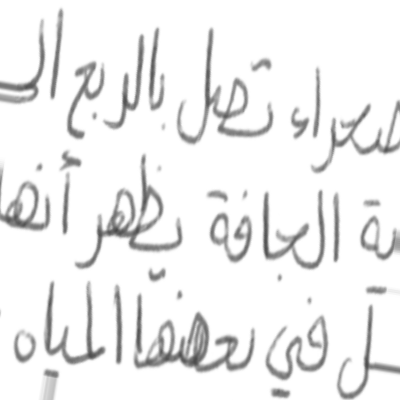 صحراء تصل بالربع الى
ية الجافة يظهر أنها
في بعضها المياه